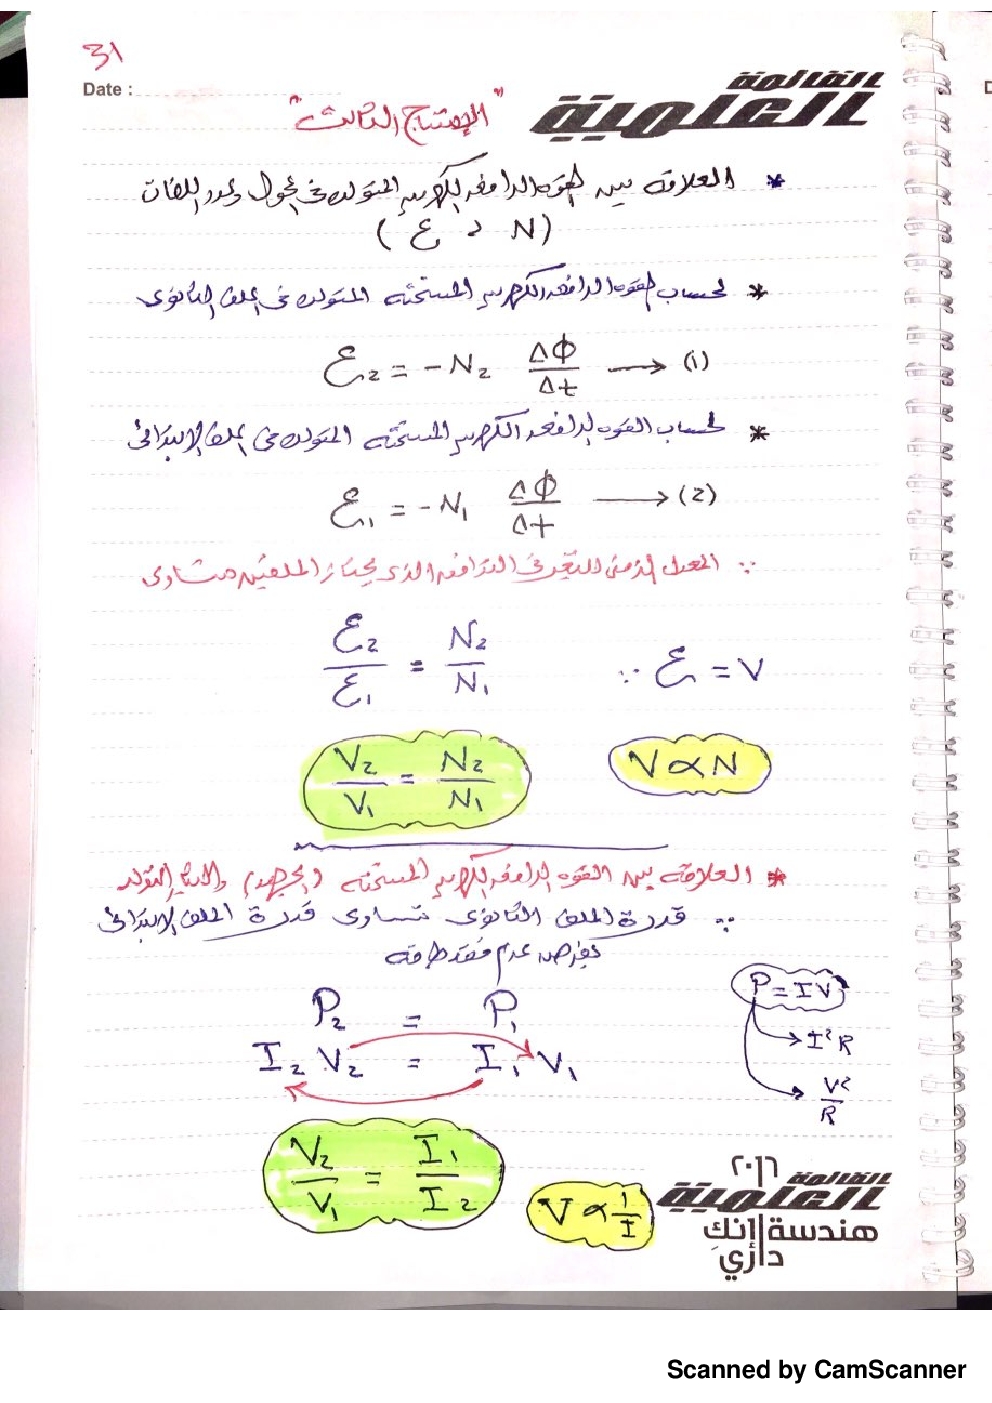 31
Date :
القائمة
العلمية
"الإستنتاج الثالث"
* العلاقة بين القوه الدافعه الكهربيه المتولده في المحول وعدد اللفات
( ε , N )
* لحساب القوه الدافعه الكهربيه المستحثه المتولده في الملف الثانوى
ε₂ = - N₂ ΔΦ/Δt → (1)
* لحساب القوه الدافعه الكهربيه المستحثه المتولده في الملف الإبتدائى
ε₁ = - N₁ ΔΦ/Δt → (2)
∵ المعدل الزمنى للتغير فى التدفق الذى يجتاز الملفين متساوى
ε₂/ε₁ = N₂/N₁ ∵ ε = V
V₂/V₁ = N₂/N₁ V ∝ N
* العلاقه بين القوه الدافعه الكهربيه المستحثه (الجهد) والتيار المتولد
∵ قدرة الملف الثانوى تساوى قدرة الملف الإبتدائى
بفرض عدم فقد طاقه
P₂ = P₁ P = IV
I₂ V₂ = I₁ V₁ → I²R
→ V²/R
V₂/V₁ = I₁/I₂ V ∝ 1/I
٢٠١٦
القائمة
العلمية
هندسة إنك
داري
Scanned by CamScanner